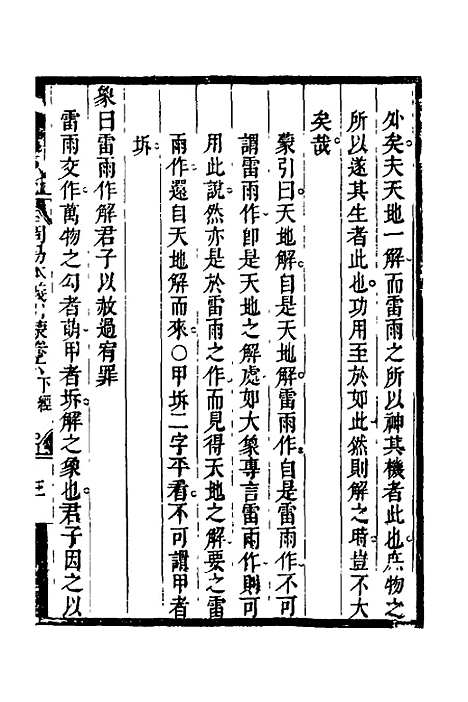 外矣夫天地一解而雷雨之所以神其機者此也庶物之
所以遂其生者此也功用至於如此然則解之時豈不大
矣哉
蒙引曰天地解自是天地解雷雨作自是雷雨作不可
謂雷雨作卽是天地之解處如大象專言雷雨作則可
用此說然亦是於雷雨之作而見得天地之解要之雷
雨作還自天地解而來○甲坼二字平看不可謂甲者
坼
象曰雷雨作解君子以赦過宥罪
雷雨交作萬物之勾者萌甲者坼解之象也君子因之以
周易本義 蒙 下經